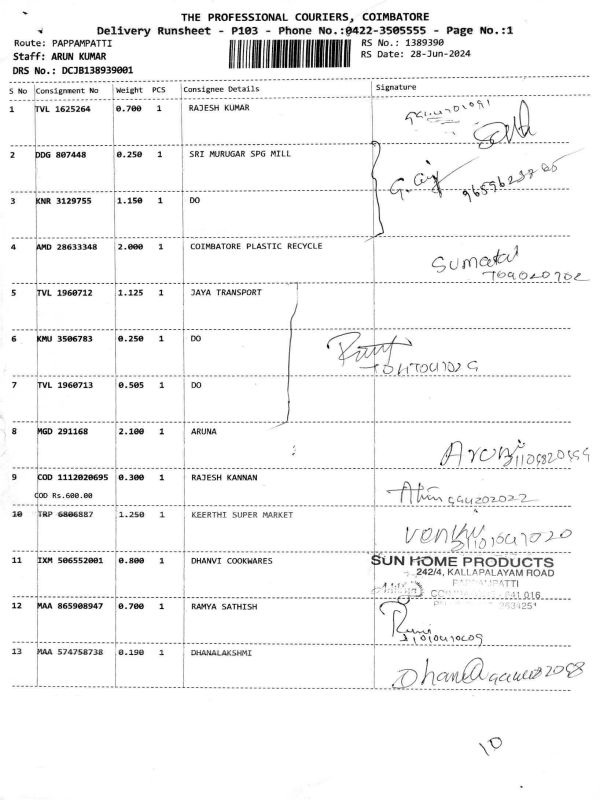 THE PROFESSIONAL COURIERS, COIMBATORE
Delivery Runsheet - P103 - Phone No.:0422-3505555 - Page No.:1
Route: PAPPAMPATTI RS No.: 1389390
Staff: ARUN KUMAR RS Date: 28-Jun-2024
DRS No.: DCJB138939001
S No Consignment No Weight PCS Consignee Details Signature
1 TVL 1625264 0.700 1 RAJESH KUMAR
2 DDG 807448 0.250 1 SRI MURUGAR SPG MILL
3 KNR 3129755 1.150 1 DO
4 AMD 28633348 2.000 1 COIMBATORE PLASTIC RECYCLE
5 TVL 1960712 1.125 1 JAYA TRANSPORT
6 KMU 3506783 0.250 1 DO
7 TVL 1960713 0.505 1 DO
8 MGD 291168 2.100 1 ARUNA
9 COD 1112020695 0.300 1 RAJESH KANNAN
COD Rs.600.00
10 TRP 6806887 1.250 1 KEERTHI SUPER MARKET
11 IXM 506552001 0.800 1 DHANVI COOKWARES
SUN HOME PRODUCTS
242/4, KALLAPALAYAM ROAD
PAPPAMPATTI
12 MAA 865908947 0.700 1 RAMYA SATHISH
13 MAA 574758738 0.190 1 DHANALAKSHMI
10